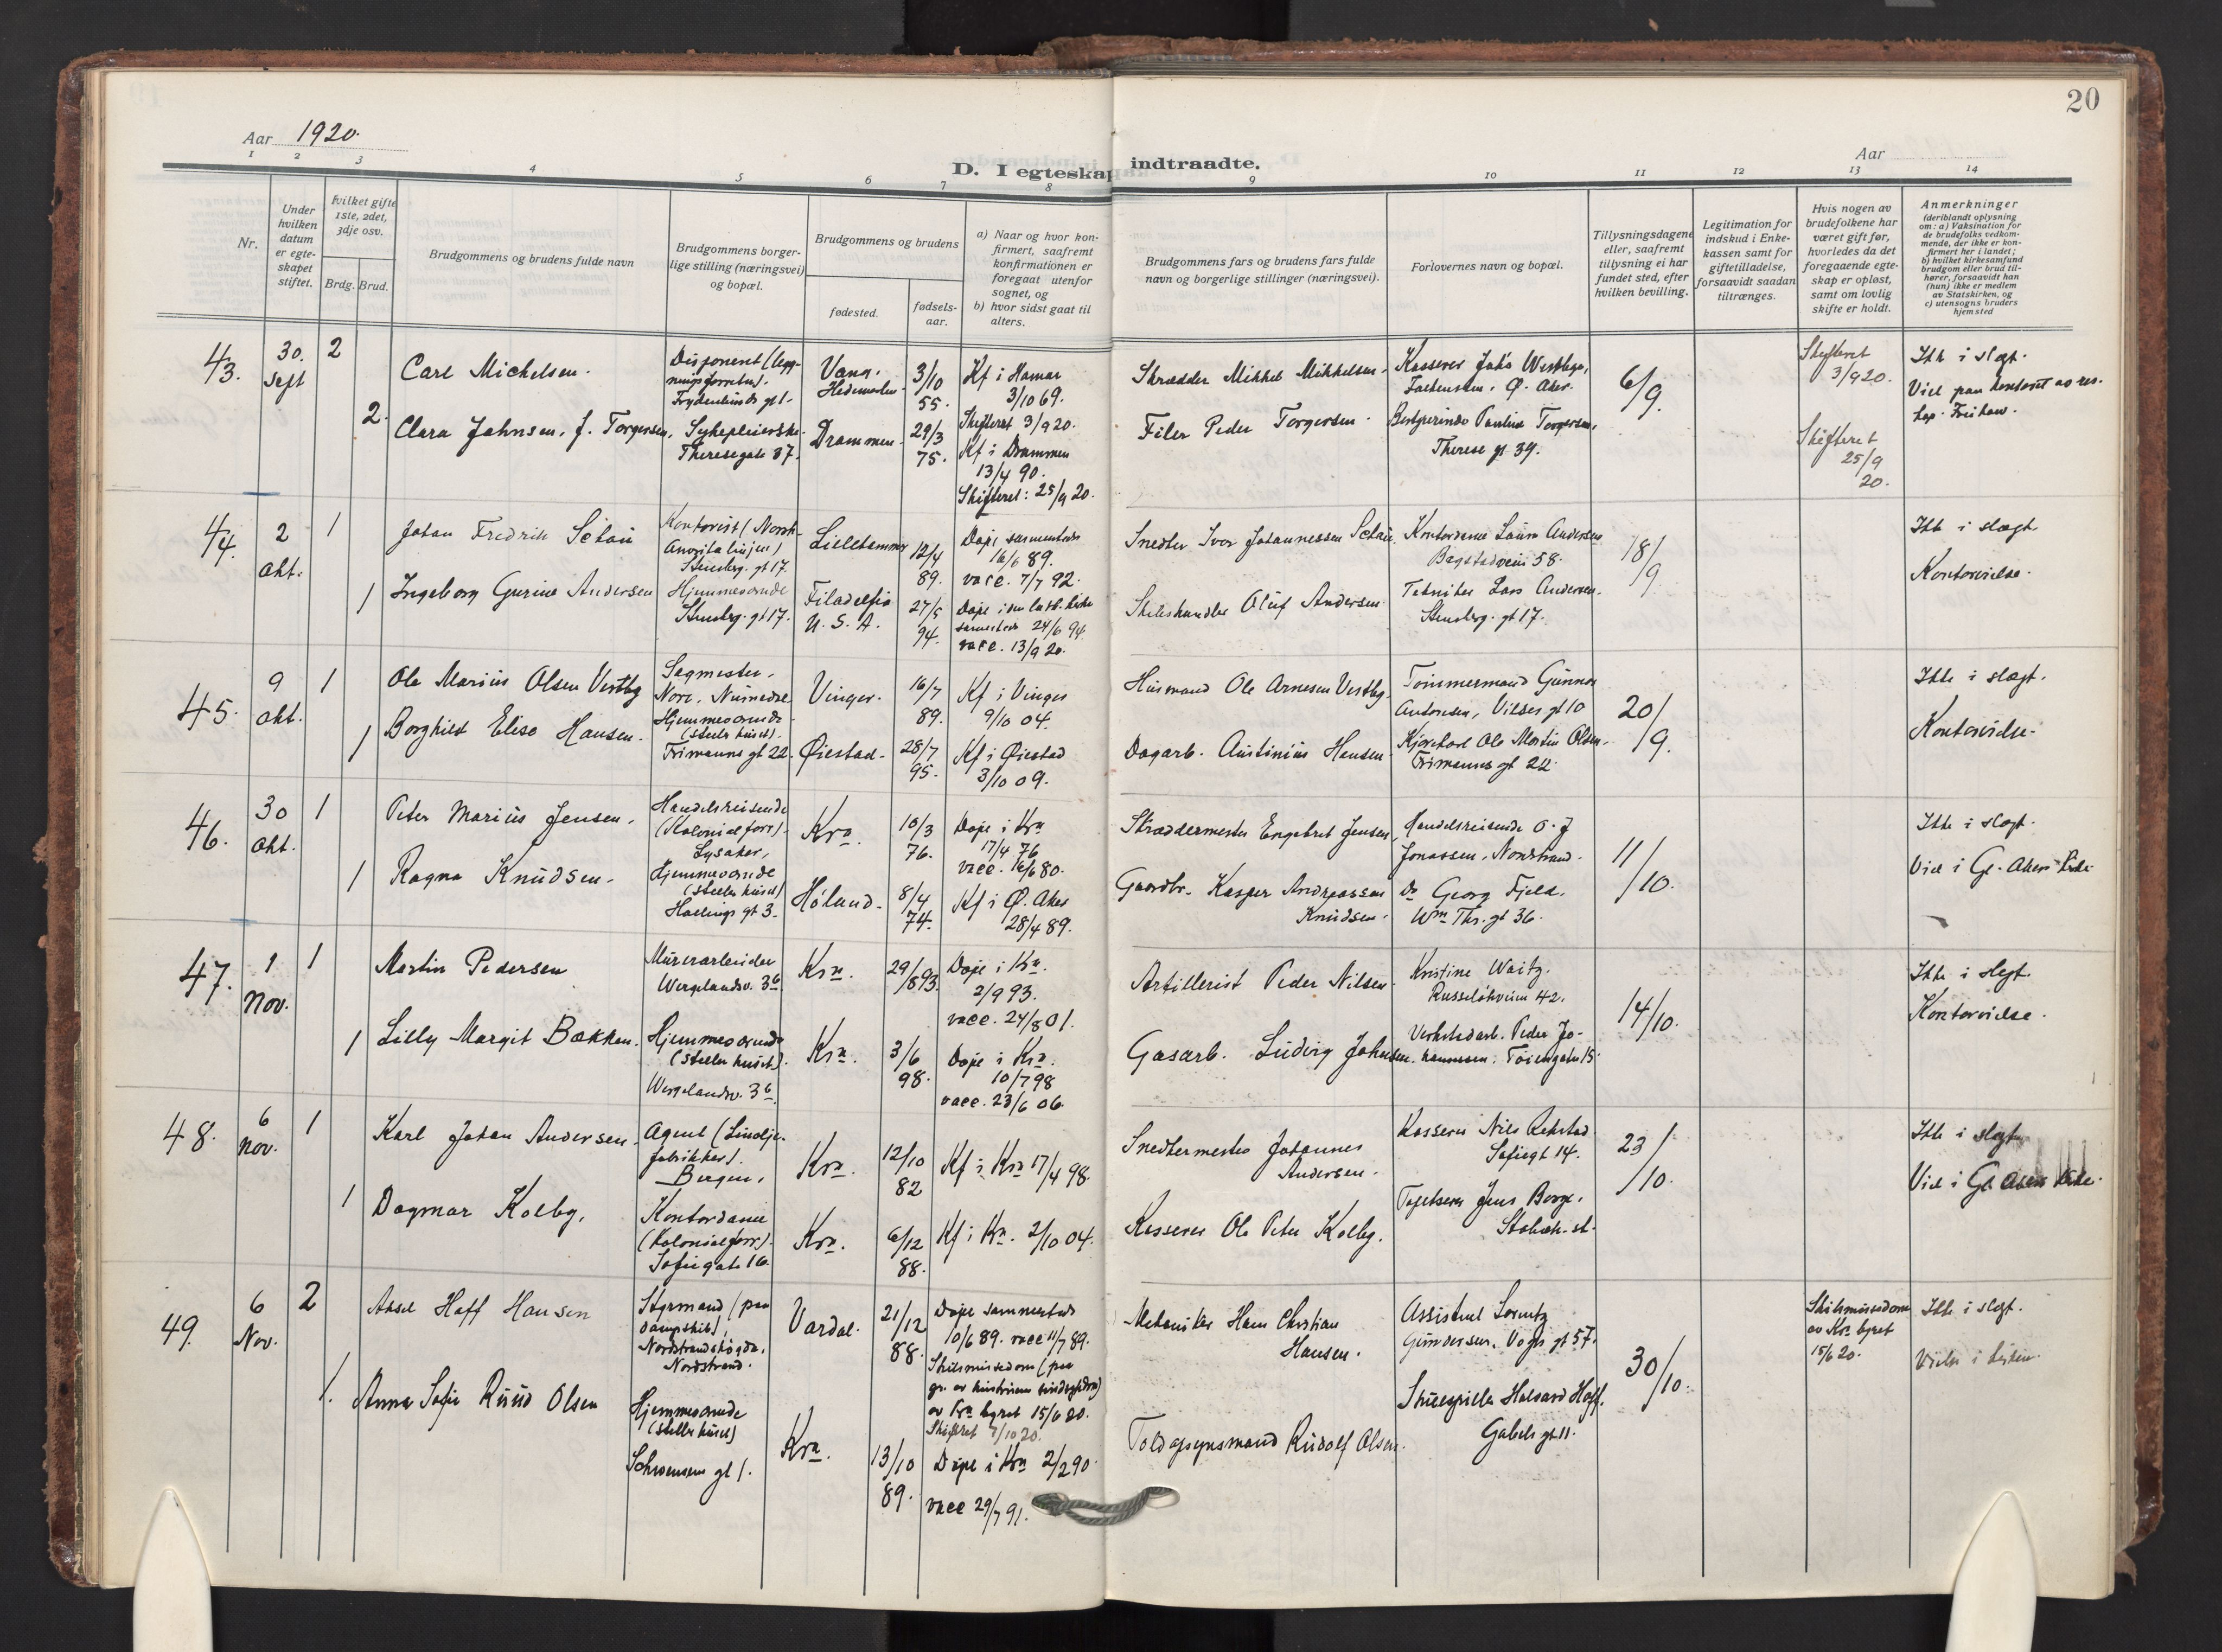 20
Aar 1920.
Aar
D. I egteskap indtraadte.
1 2 3 4 5 6 7 8 9 10 11 12 13 14
Nr.
Under hvilken datum er egteskapet stiftet.
Hvilket gifte 1ste, 2det, 3dje osv.
Brdg. Brud.
Brudgommens og brudens fulde navn
Brudgommens borgerlige stilling (næringsvei) og bopæl.
Brudgommens og brudens
fødested.
fødselsaar.
a) Naar og hvor konfirmert, saafremt konfirmationen er foregaat utenfor sognet, og
b) hvor sidst gaat til alters.
Brudgommens fars og brudens fars fulde navn og borgerlige stillinger (næringsvei).
Forlovernes navn og bopæl.
Tillysningsdagene eller, saafremt tillysning ei har fundet sted, efter hvilken bevilling.
Legitimation for indskud i Enkekassen samt for giftetilladelse, forsaavidt saadan tiltrænges.
Hvis nogen av brudefolkene har været gift før, hvorledes da det foregaaende egteskap er opløst, samt om lovlig skifte er holdt.
Anmerkninger
(deriblandt oplysning om: a) Vaksination for de brudefolks vedkommende, der ikke er konfirmert her i landet; b) hvilket kirkesamfund brudgom eller brud tilhører, forsaavidt han (hun) ikke er medlem av Statskirken, og c) utensogns bruders hjemsted
43. 30. Sept 2
Carl Michelsen.
Disponent
Vang, Hedemarken
3/10 55.
Kf i Hamar 3/10 69.
Skifteret 3/9 20.
Skrædder Mikkel Mikkelsen.
Kasserer
6/9.
Skifteret 3/9 20.
Ikk i slægt.
Viel paa kontoret av res. kap.
2.
Clara Johnsen, f. Torgersen,
Sykepleierske.
Theresegate 37.
Drammen
29/3 75.
Kf i Drammen 13/4 90.
Skifteret: 25/9 20.
Filer Peder Torgersen.
Bestyrerinde Pauline Torgersen,
Therese gt 39.
Skifteret 25/9 20.
44. 2 Okt. 1
Johan Fredrik
Kontorist (Norsk Amerika linjen)
Stensberg. gt 17.
Lillehammer
12/4 89.
Døpt sammesteds 16/6 89.
vacc. 7/7 92.
Snedker Iver Johannessen
Kontordame Laura Andersen
Bogstadveien 58.
18/9
Ikk i slægt
Kontorvielse.
1
Ingeborg Gurine Andersen
Hjemmeværende
Stensberg. gt 17.
Filadelfia U.S.A.
27/5 94.
Døpt i den luth. kirke
sammesteds 24/6 94.
vacc. 13/9 20.
Oluf Andersen
Tekniker Lars Andersen.
Stensberg. gt 17.
45. 9 Okt. 1
Ole Marius Olsen Vestby
Sagmester.
Nore, Numedal
Vinger.
16/7 89.
Kf i Vinger 9/10 04.
Husmand Ole Arnesen Vestby.
Tømmermand Gunnar
Antonsen, Vibes gt 10
20/9.
Ikk i slægt.
Kontorvielse.
1
Borghild Elise Hansen.
Hjemmeværende
(steller huset).
Frimanns gt 22.
Øiestad.
28/7 95.
Kf i Øiestad 3/10 09.
Dagarb. Austinius Hansen
Kjørekarl Ole Martin Olsen.
Frimanns gt 22.
46. 30 Okt. 1
Peter Marius Jensen.
Handelsreisende
(Kolonialforr).
Lysaker,
Kra.
10/3 76.
Døpt i Kra 17/4 76
vacc. 16/6 80.
Skræddermester Engebret Jensen,
Handelsreisende O. J
Jonassen, Nordstrand.
11/10.
Ikk i slægt.
Viel i Gl. Akers kirke
1
Ragna Knudsen.
Hjemmeværende
(steller huset)
Hallings gt 3.
Høland.
8/4 74.
Kf i Ø. Aker 28/4 89.
Gaardbr. Kasper Andreassen Knudsen.
Dr Georg Fjeld.
Wm Thr. gt 36.
47. 1 Nov. 1
Martin Pedersen
Murerarbeider
Wergelandsv. 3b
Kra.
29/8 93.
Døpt i Kra. 2/9 93.
vacc. 24/8 01.
Artillerist Peder Nilsen.
Kristine Waitz.
Russeløkveien 42.
14/10.
Ikk i slægt.
Kontorvielse.
1
Lilly Margit Bakken.
Hjemmeværende
(steller huset).
Wergelandsv. 3b
Kra.
3/6 98.
Døpt i Kra. 10/7 98
vacc. 23/6 06.
Gasarb. Ludvig Johnsen.
Verkstedarb. Peder Johannessen. Tøiengaten 15.
48. 6 Nov. 1
Karl Johan Andersen.
Agent (Linoljefabrikker).
Bergen,
Kra.
12/10 82
Kf i Kra 17/4 98.
Snedkermester Johannes Andersen.
Kasserer Nils Rekstad
Sofiegt 14.
23/10.
Ikk i slægt
Viel i Gl Akers kirke.
1
Dagmar Kolby,
Kontordame
(Kolonialforr).
Sofiegate 16.
Kra.
6/12 88.
Kf i Kra. 2/10 04.
Kasserer Ole Peter Kolby.
Tapetserer Jens Berge.
Stabæk. st.
49. 6 Nov. 2
Aksel Hoff Hansen
Styrmand (paa dampskib),
Nordstrandshøgda,
Nordstrand.
Vardal.
21/12 88.
Døpt sammesteds
10/6 89. vacc 11/7 89.
Skilsmissedom (paa
av Kra byret 15/6 20.
Skifteret 7/10 20.
Mekaniker Hans Christian Hansen.
Assistent Lorentz
Gundersen, Vogts gt 57.
30/10.
Skilsmissedom
av Kra byret
15/6 20.
Ikk i slægt.
1.
Anna Sofie Ruud Olsen
Hjemmeværende
(steller huset)
Schwensens gt 1.
Kra.
13/10 89.
Døpt i Kra 2/2 90.
vacc 29/7 91.
Toldopsynsmand Rudolf Olsen.
Skuespiller Halvard Hoff.
Gabels gt 11.